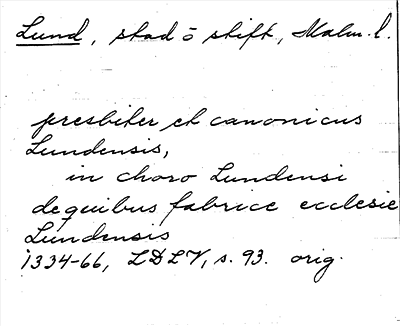 Lund, stad o stift, Malm. l.
presbiter et canonicus
Lundensis,
in choro Lundensi
de quibus fabrice ecclesie
Lundensis
1334-66, LDLV, s. 93. orig.